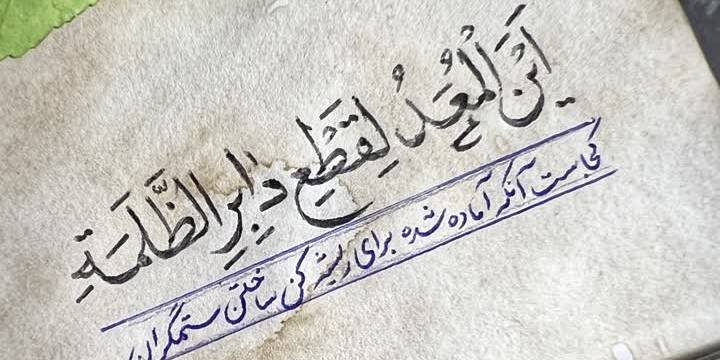 اَیْنَ الْمُعَدُّ لِقَطْعِ دٰابِرِ الظَّلَمَةِ
کجاست آنکه آماده شده برای ریشه کن ساختن ستمگران